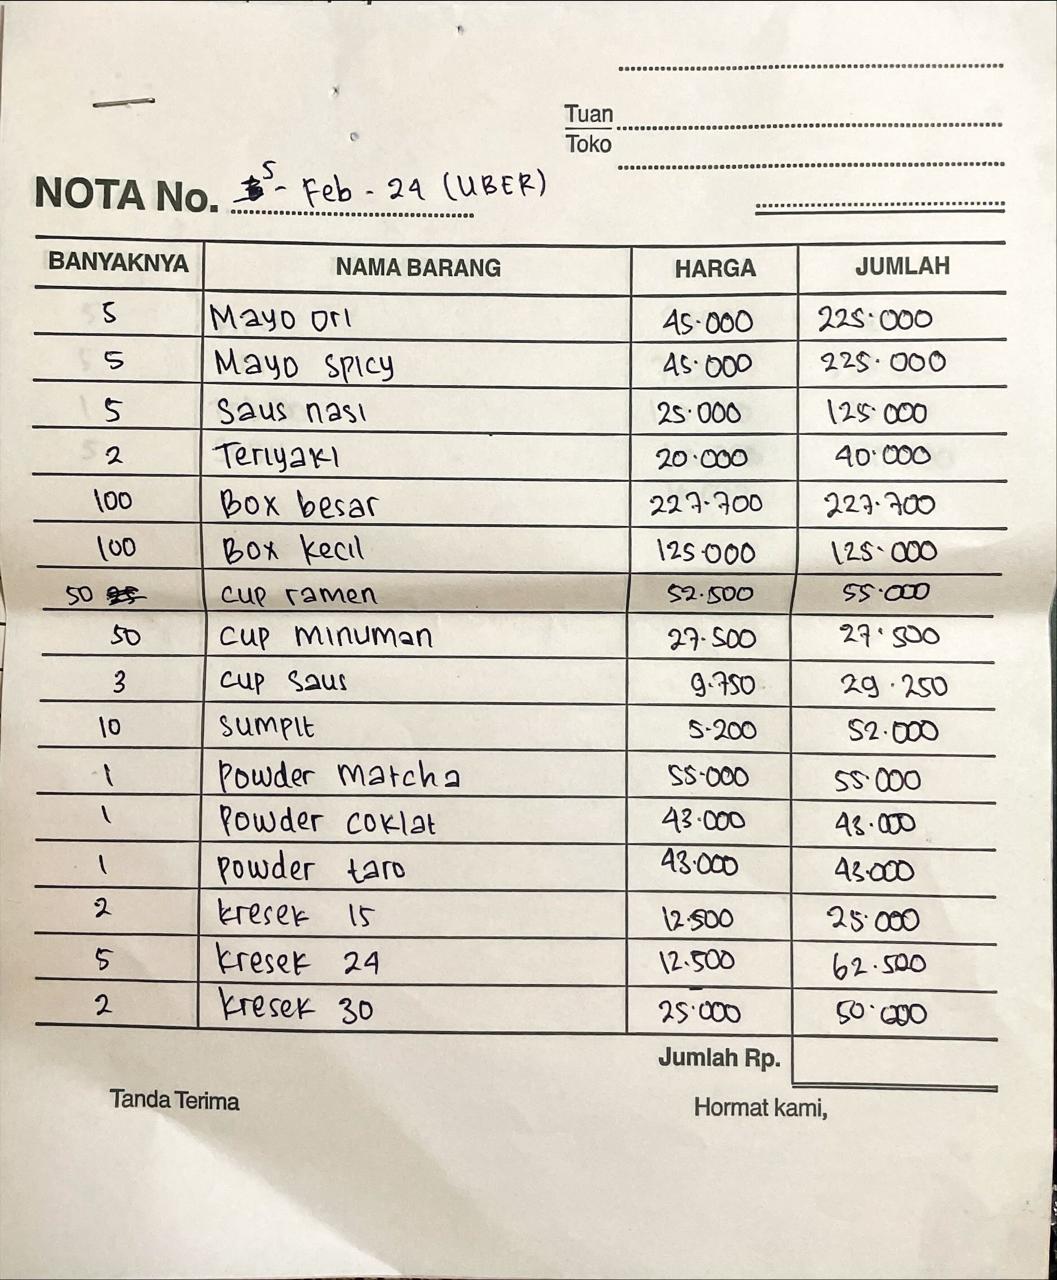 Tuan
Toko
NOTA No. 5 - Feb - 24 (UBER)
BANYAKNYA NAMA BARANG HARGA JUMLAH
5 Mayo ori 45.000 225.000
5 Mayo spicy 45.000 225.000
5 Saus nasi 25.000 125.000
2 Teriyaki 20.000 40.000
100 Box besar 227.700 227.700
100 Box kecil 125.000 125.000
50 cup ramen 52.500 55.000
50 cup minuman 27.500 27.500
3 cup saus 9.750 29.250
10 sumpit 5.200 52.000
1 Powder matcha 55.000 55.000
1 Powder coklat 43.000 43.000
1 Powder taro 43.000 43.000
2 kresek 15 12.500 25.000
5 kresek 24 12.500 62.500
2 kresek 30 25.000 50.000
Jumlah Rp.
Tanda Terima Hormat kami,